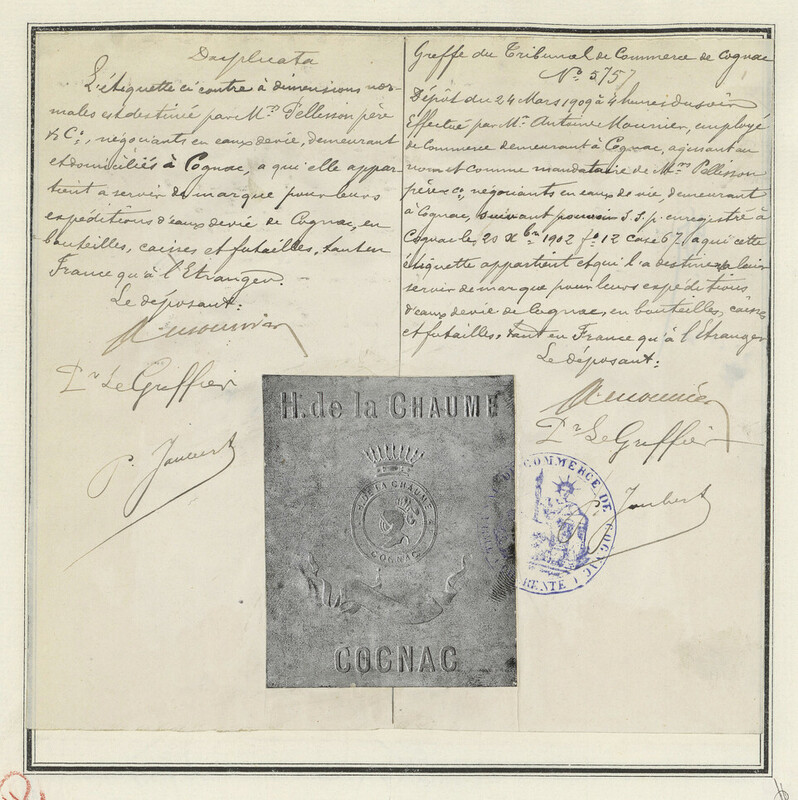 Duplicata
L'étiquette ci contre à dimensions nor-
males est destinée par Mrs Pellisson père
& Cie, négociants en eaux de vie, demeurant
et domiciliés à Cognac, a qui elle appar-
tient a servir de marque pour leurs
expéditions d'eaux de vie de Cognac, en
bouteilles, caisses et futailles, tant en
France qu'à l'Etranger.
Le déposant:
A. Mounier
Pr Le Greffier
P. Joubert
Greffe du Tribunal de Commerce de Cognac
No 5757
Dépôt du 24 Mars 1909 à 4 heures du soir
Effectué par Mr Antoine Mounier, employé
de Commerce demeurant à Cognac, agissant au
nom et comme mandataire de Mrs Pellisson
père & Co, négociants en eaux de vie, demeurant
à Cognac, suivant pouvoir S.S.p. enregistré à
Cognac le 20 Xbre 1902 fo 12 case 67. a qui cette
étiquette appartient et qui l'a destinée
servir de marque pour leurs expéditions
d'eaux de vie de Cognac, en bouteilles, caisses
et futailles, tant en France qu'à l'Etranger
Le déposant:
A. Mounier
Pr Le Greffier
P. Joubert
H. de la CHAUME
H. DE LA CHAUME
COGNAC
COGNAC
DE COMMERCE DE COGNAC